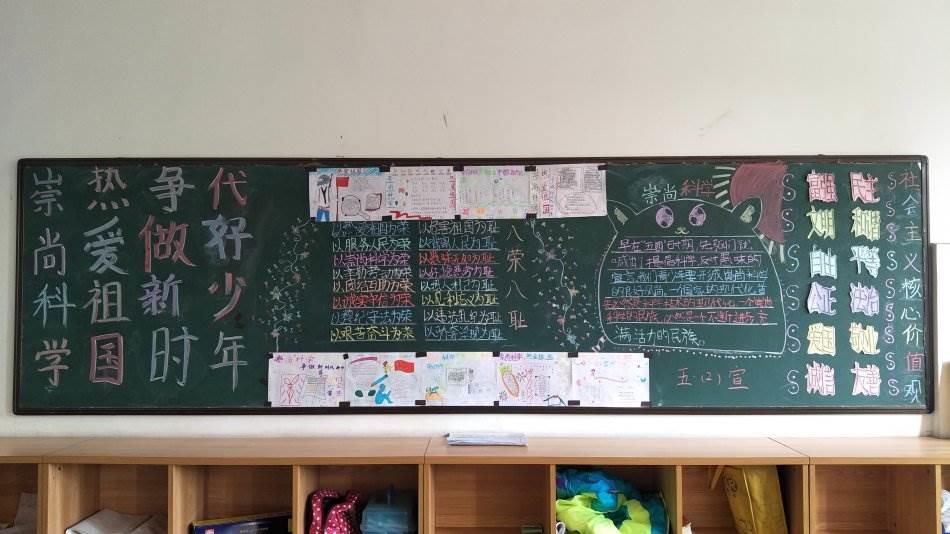 崇尚科学
热爱祖国
争做新时
代好少年
以热爱祖国为荣 以危害祖国为耻
以服务人民为荣 以背离人民为耻
以崇尚科学为荣 以愚昧无知为耻
以辛勤劳动为荣 以好逸恶劳为耻
以团结互助为荣 以损人利己为耻
以诚实守信为荣 以见利忘义为耻
以遵纪守法为荣 以违法乱纪为耻
以艰苦奋斗为荣 以骄奢淫逸为耻
八荣八耻
崇尚科学
早在"五四"时期,先驱们就
提倡科学,反对愚昧的
崇尚科学
的良好风尚。一个国家的现代化,首
满活力的民族。
五·(2)宣
富强 民主
文明 和谐
自由 平等
公正 法治
爱国 敬业
诚信 友善
社会主义核心价值观